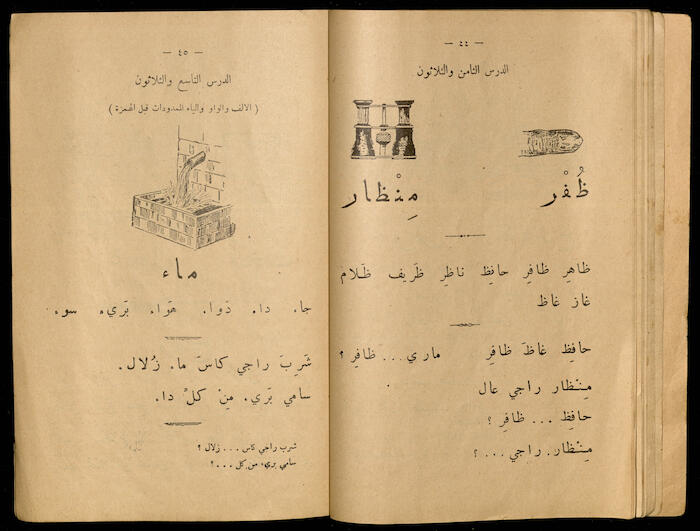 — ٤٤ —
الدرس الثامن والثلاثون
ظُفْر مِنْظار
ظاهِر ظافِر حافِظ ناظِر ظَريف ظَلام
غاز غاظ
حافِظ غاظَ ظافِر ماري... ظافِر ؟
مِنْظار راجي عال
حافِظ ... ظافِر ؟
مِنْظار راجي ... ؟
— ٤٥ —
الدرس التاسع والثلاثون
( الالف والواو والياء الممدودات قبل الهمزة )
ماء
جاء داء دَواء هَواء بَريء سوء
شَرِبَ راجي كاسَ ماء زُلال.
سامي بَريء مِن كلْ داء.
شرب راجي كاس ... زلال ؟
سامي بريء من كل ... ؟